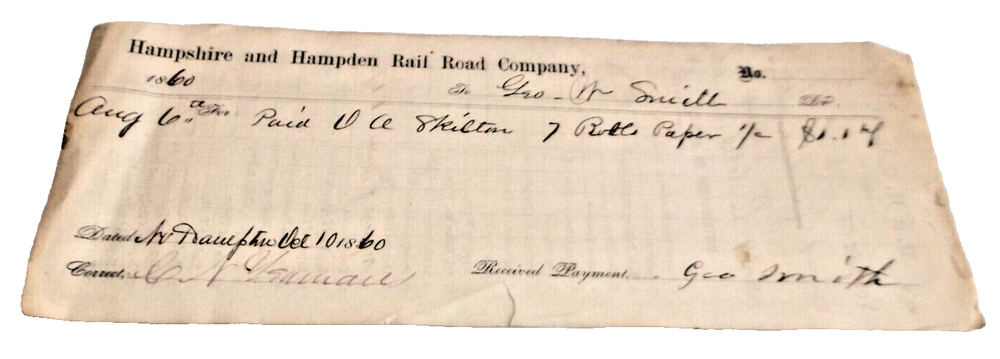 Hampshire and Hampden Rail Road Company, No.
1860 To Geo. W Smith Dr.
Aug 6th For Paid D A Skilton 7 Rolls Paper $1.17
Dated No Hampton Oct 10 1860
Correct, C N Yeamans Received Payment, Geo Smith